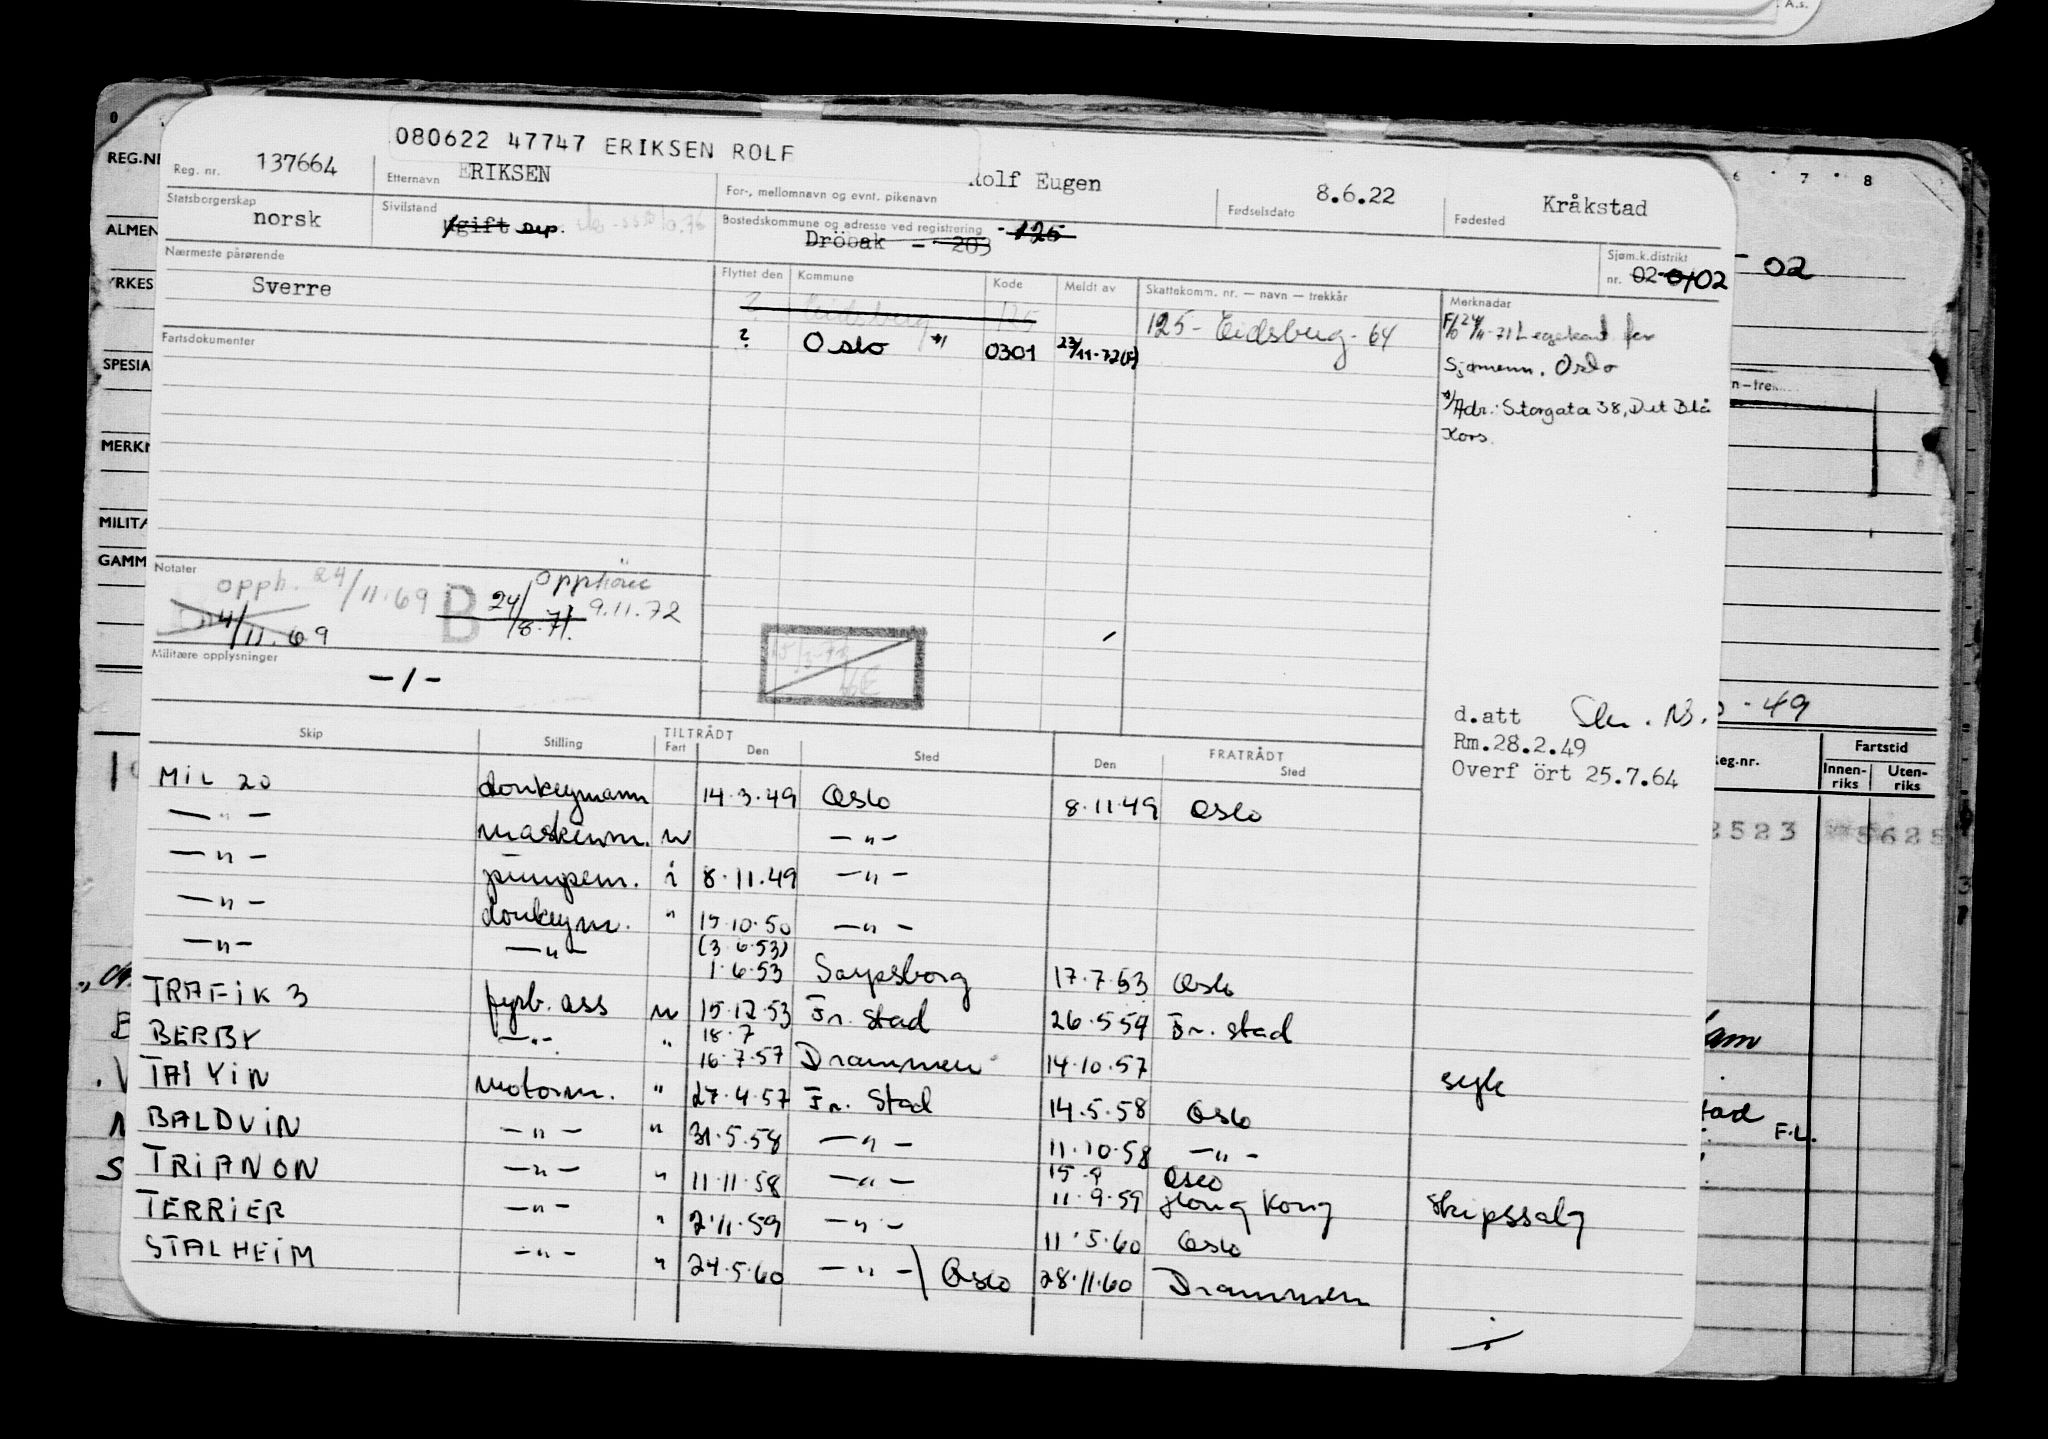 080622 47747 ERIKSEN ROLF
Reg. nr. 137664 Etternavn ERIKSEN For-, mellomnavn og evnt. pikenavn Rolf Eugen Fødselsdato 8.6.22 Fødested Kråkstad
Statsborgerskap norsk Sivilstand gift sep. Bostedskommune og adresse ved registrering Dröbak - 203 - 125
Sjøm.k.distrikt nr. 02 0102
- 02
Nærmeste pårørende Sverre
Flyttet den Kommune Kode Meldt av Skattekomm. nr. — navn — trekkår Merknadar
? Eidsberg 125
125 - Eidsberg - 64
? Oslo *) 0301 23/11-72(F)
F/b 24/11-71 Legekont for
Sjømenn, Oslo
*) Adr.: Storgata 38, Det Blå
Kors.
Fartsdokumenter
Notater
opph. 24/11.69 B 24/8.71. Opphöre 9.11.72
4/11.69
Militære opplysninger
- / -
d.att
Rm.28.2.49
Overf ört 25.7.64
- 49
Skip Stilling TILTRÅDT Fart Den Sted FRATRÅDT Den Sted
MIL 20 donkeymann 14.3.49 Oslo 8.11.49 Oslo
—"— maskinm. u —"—
—"— pumpem. i 8.11.49 —"—
—"— donkeym. " 15.10.50 —"—
—"— —"— (3.6.53)
1.6.53 Sarpsborg 17.7.53 Oslo
TRAFIK 3 fyrb. ass u 15.12.53 Fr. stad 26.5.59 Fr. stad
BERBY —"— " 18.7
16.7.57 Drammen 14.10.57 syk
TAI YIN motorm. " 27.4.57 Fr. Stad 14.5.58 Oslo
BALDUIN —"— " 31.5.58 —"— 11.10.58 —"—
TRIANON —"— " 11.11.58 —"— 15.9 Oslo
11.9.59 Hong Kong Skipssalg
TERRIER —"— " 2.11.59 —"— 11.5.60 Oslo
STALHEIM —"— " 24.5.60 —"— ) Oslo 28.11.60 Drammen
REG.N
ALMEN
YRKES
SPESIA
MERKN
MILITÆ
GAMM
6 7 8
Reg.nr.
Fartstid
Innen-
riks
Uten-
riks
2523 5625
F.L.